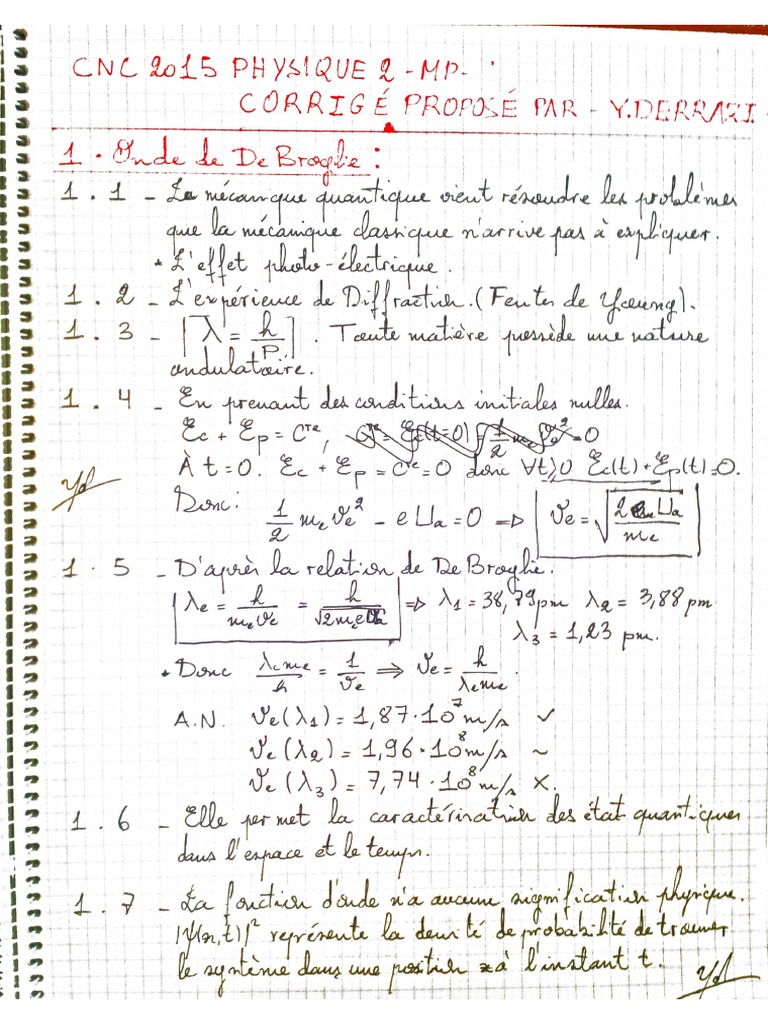 CNC 2015 PHYSIQUE 2 - MP-
CORRIGÉ PROPOSÉ PAR - Y.DERRAZI -
1. Onde de De Broglie :
1.1 - La mécanique quantique vient résoudre les problèmes
que la mécanique classique n'arrive pas à expliquer.
* L'effet photo-électrique.
1.2 - L'expérience de Diffraction. (Fentes de Yoeung).
1.3 - |λ = h/P| . Toute matière possède une nature
ondulatoire.
1.4 - En prenant des conditions initiales nulles.
Ec + Ep = Cte,
À t=0. Ec + Ep = Cte = 0 donc ∀t≥0 Ec(t)+Ep(t)=0.
Donc: 1/2 me ve² - eUa = 0 => ve = √(2eUa/me)
1.5 - D'après la relation de De Broglie.
λe = h/(me ve) = h/√(2me eUa) => λ1 = 38,79 pm λ2 = 3,88 pm
λ3 = 1,23 pm.
* Donc λe me/h = 1/ve => ve = h/(λe me).
A.N. ve(λ1) = 1,87·10⁷ m/s ✓
ve(λ2) = 1,96·10⁸ m/s ~
ve(λ3) = 7,74·10⁸ m/s ×.
1.6 - Elle permet la caractérisation des état quantiques
dans l'espace et le temps.
1.7 - La fonction d'onde n'a aucune signification physique.
|ψ(x,t)|² représente la densité de probabilité de trouver
le système dans une position x à l'instant t.